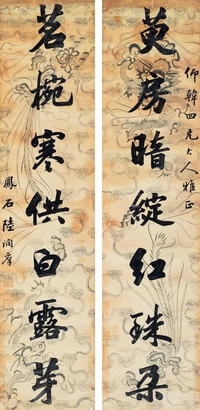 仰韓四兄大人雅正
萸房暗綻紅珠朵
茗椀寒供白露芽
鳳石陸潤庠